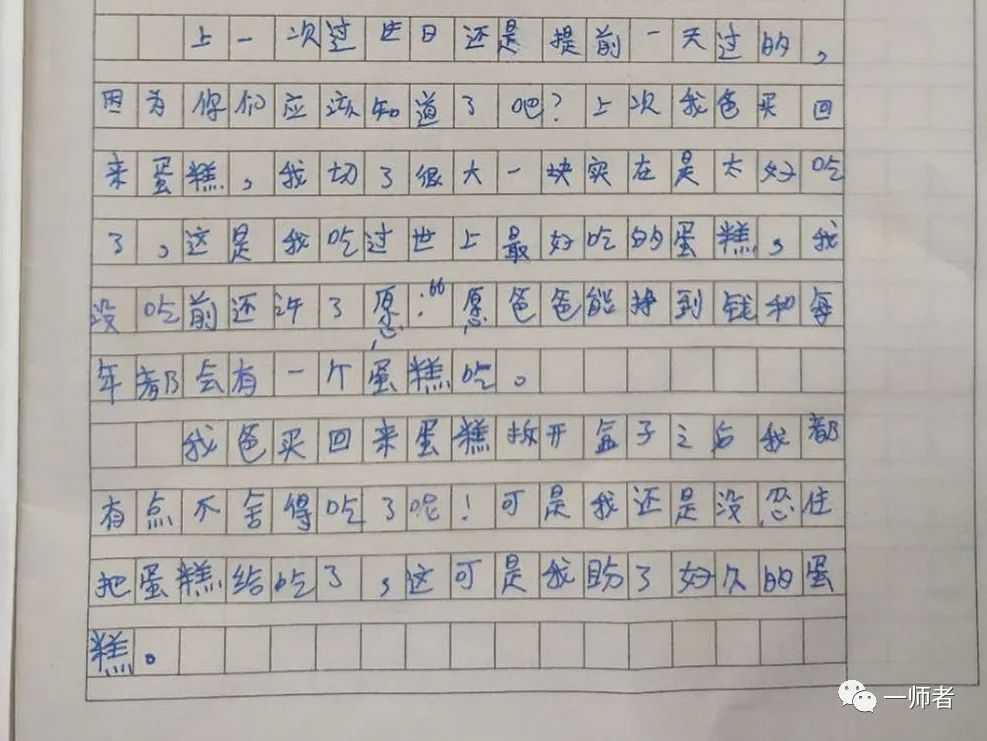 上一次过生日还是提前一天过的，
因为你们应该知道了吧？上次我爸买回
来蛋糕，我切了很大一块实在是太好吃
了，这是我吃过世上最好吃的蛋糕，我
没吃前还许了愿：“愿爸爸能挣到钱和每
年都会有一个蛋糕吃。
我爸买回来蛋糕拆开盒子之后我都
有点不舍得吃了呢！可是我还是没忍住
把蛋糕给吃了，这可是我盼了好久的蛋
糕。
一师者